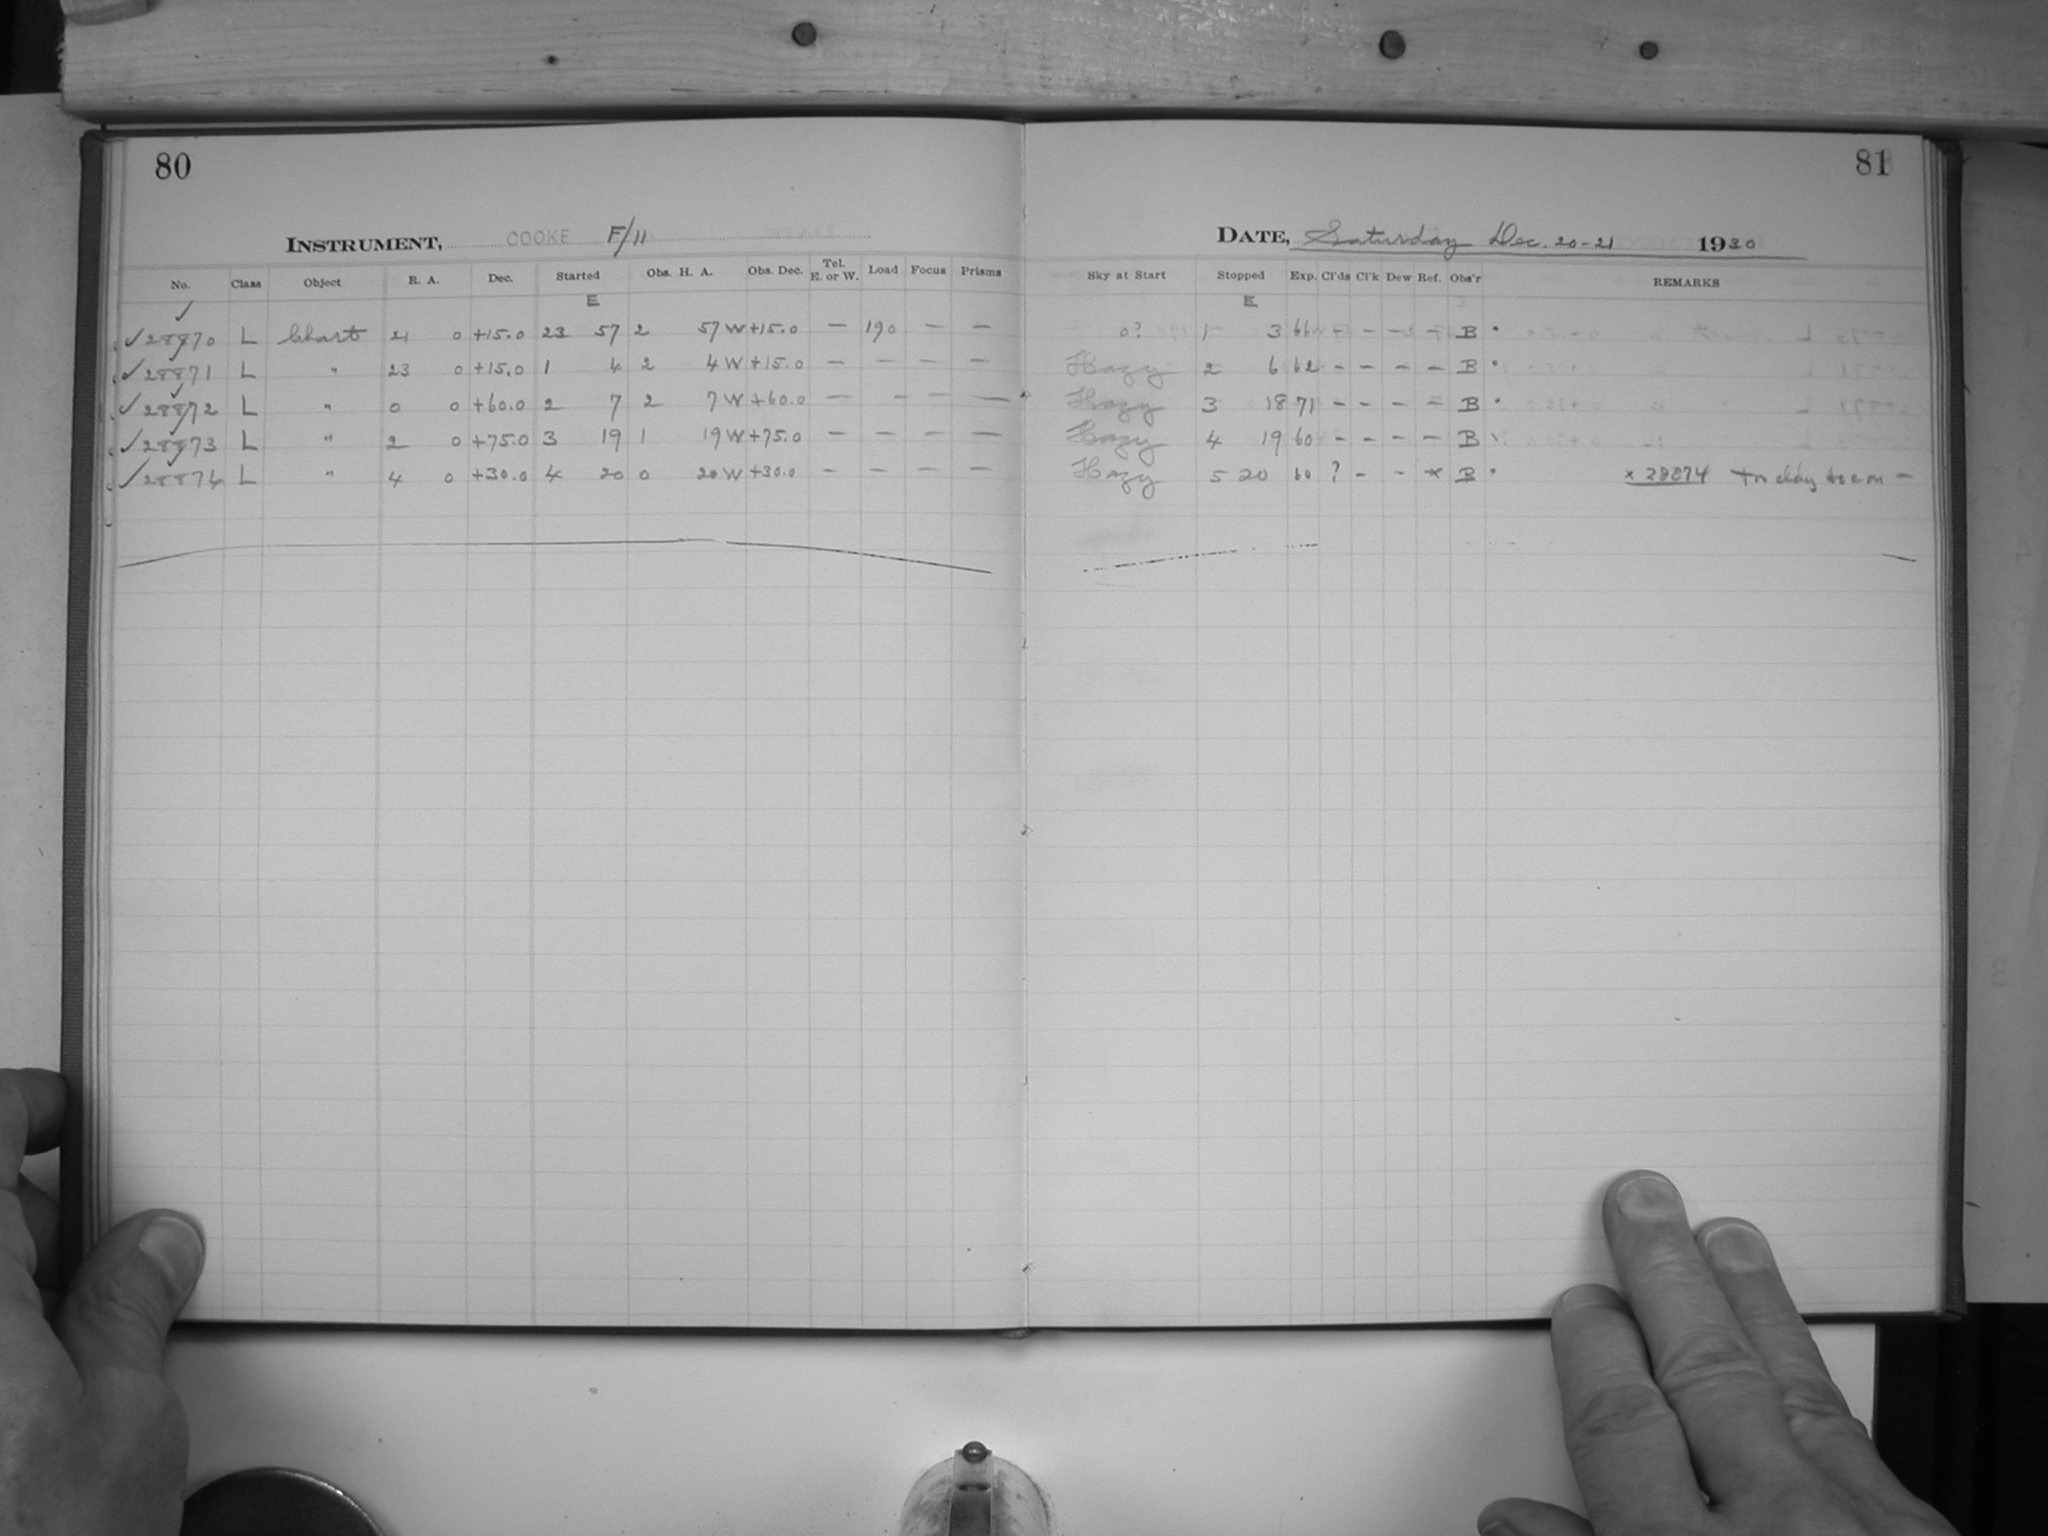 80
INSTRUMENT, COOKE F/11
No. Class Object R. A. Dec. Started Obs. H. A. Obs. Dec. Tel. E. or W. Load Focus Prisms
E
✓
✓28870 L Chart 21 0 +15.0 23 57 2 57 W +15.0 — 190 — —
✓28871 L " 23 0 +15.0 1 4 2 4 W +15.0 — — — —
✓28872 L " 0 0 +60.0 2 7 2 7 W +60.0 — - — —
✓28873 L " 2 0 +75.0 3 19 1 19 W +75.0 — — — —
✓28874 L " 4 0 +30.0 4 20 0 20 W +30.0 — — — —
81
DATE, Saturday Dec. 20-21 1930
Sky at Start Stopped Exp. Cl'ds Cl'k Dew Ref. Obs'r REMARKS
E
0? 1 3 66 - - - - B
Hazy 2 6 62 - - - - B
Hazy 3 18 71 - - - - B
Hazy 4 19 60 - - - - B
Hazy 5 20 60 ? - - x B x 28874